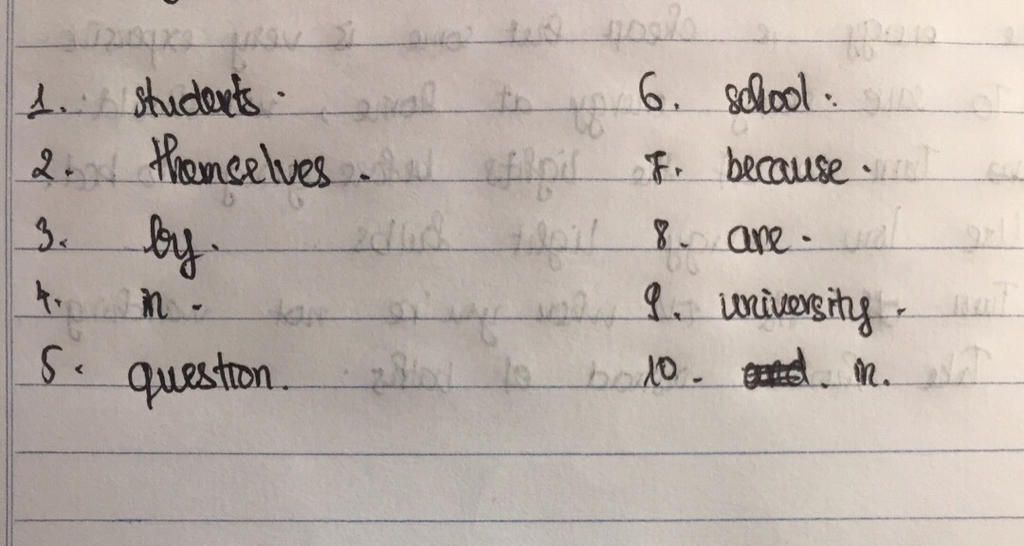 1. students.
2. themselves.
3. by.
4. in.
5. question.
6. school.
7. because.
8. are.
9. university.
10. in.